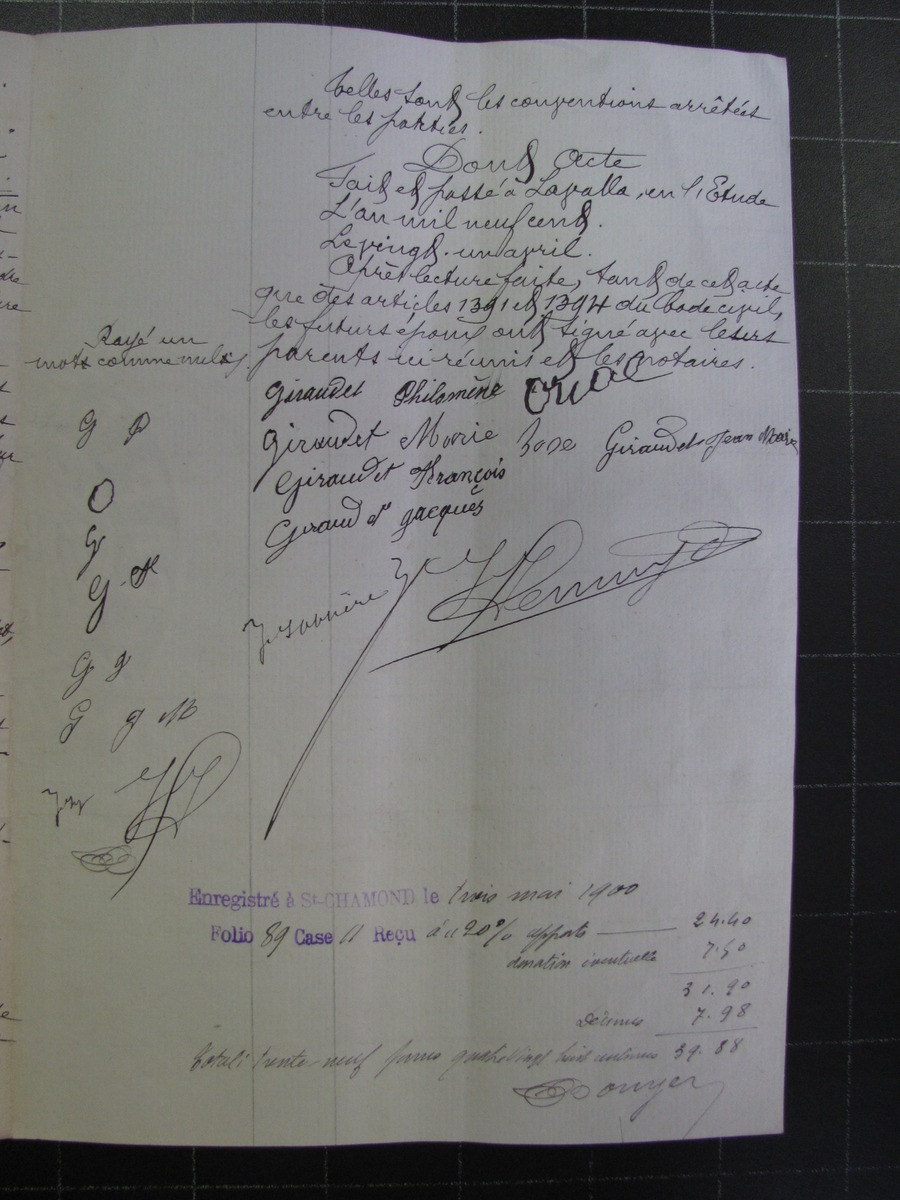 Telles sont les conventions arrêtées
entre les parties.
Dont Acte
Fait et passé à Lavalla, en l'Etude
L'an mil neuf cent.
Le vingt-un avril.
Après lecture faite, tant de cet acte
que des articles 1391 et 1394 du Code civil,
les futurs époux ont signé avec leurs
parents ici réunis et les notaires.
Rayé un
mots comme nuls
Giraudet Philomène Oriol
Giraudet Marie Rose Giraudet Jean Marie
Giraudet François
Giraudet Jacques
G P
O
G
G F
G J
G J M
Enregistré à St-CHAMOND le trois mai 1900
Folio 89 Case 11 Reçu à 0.20% apports 24.40
donation éventuelle 7.50
31.90
Décimes 7.98
Total: trente-neuf francs quatre vingt huit centimes 39.88